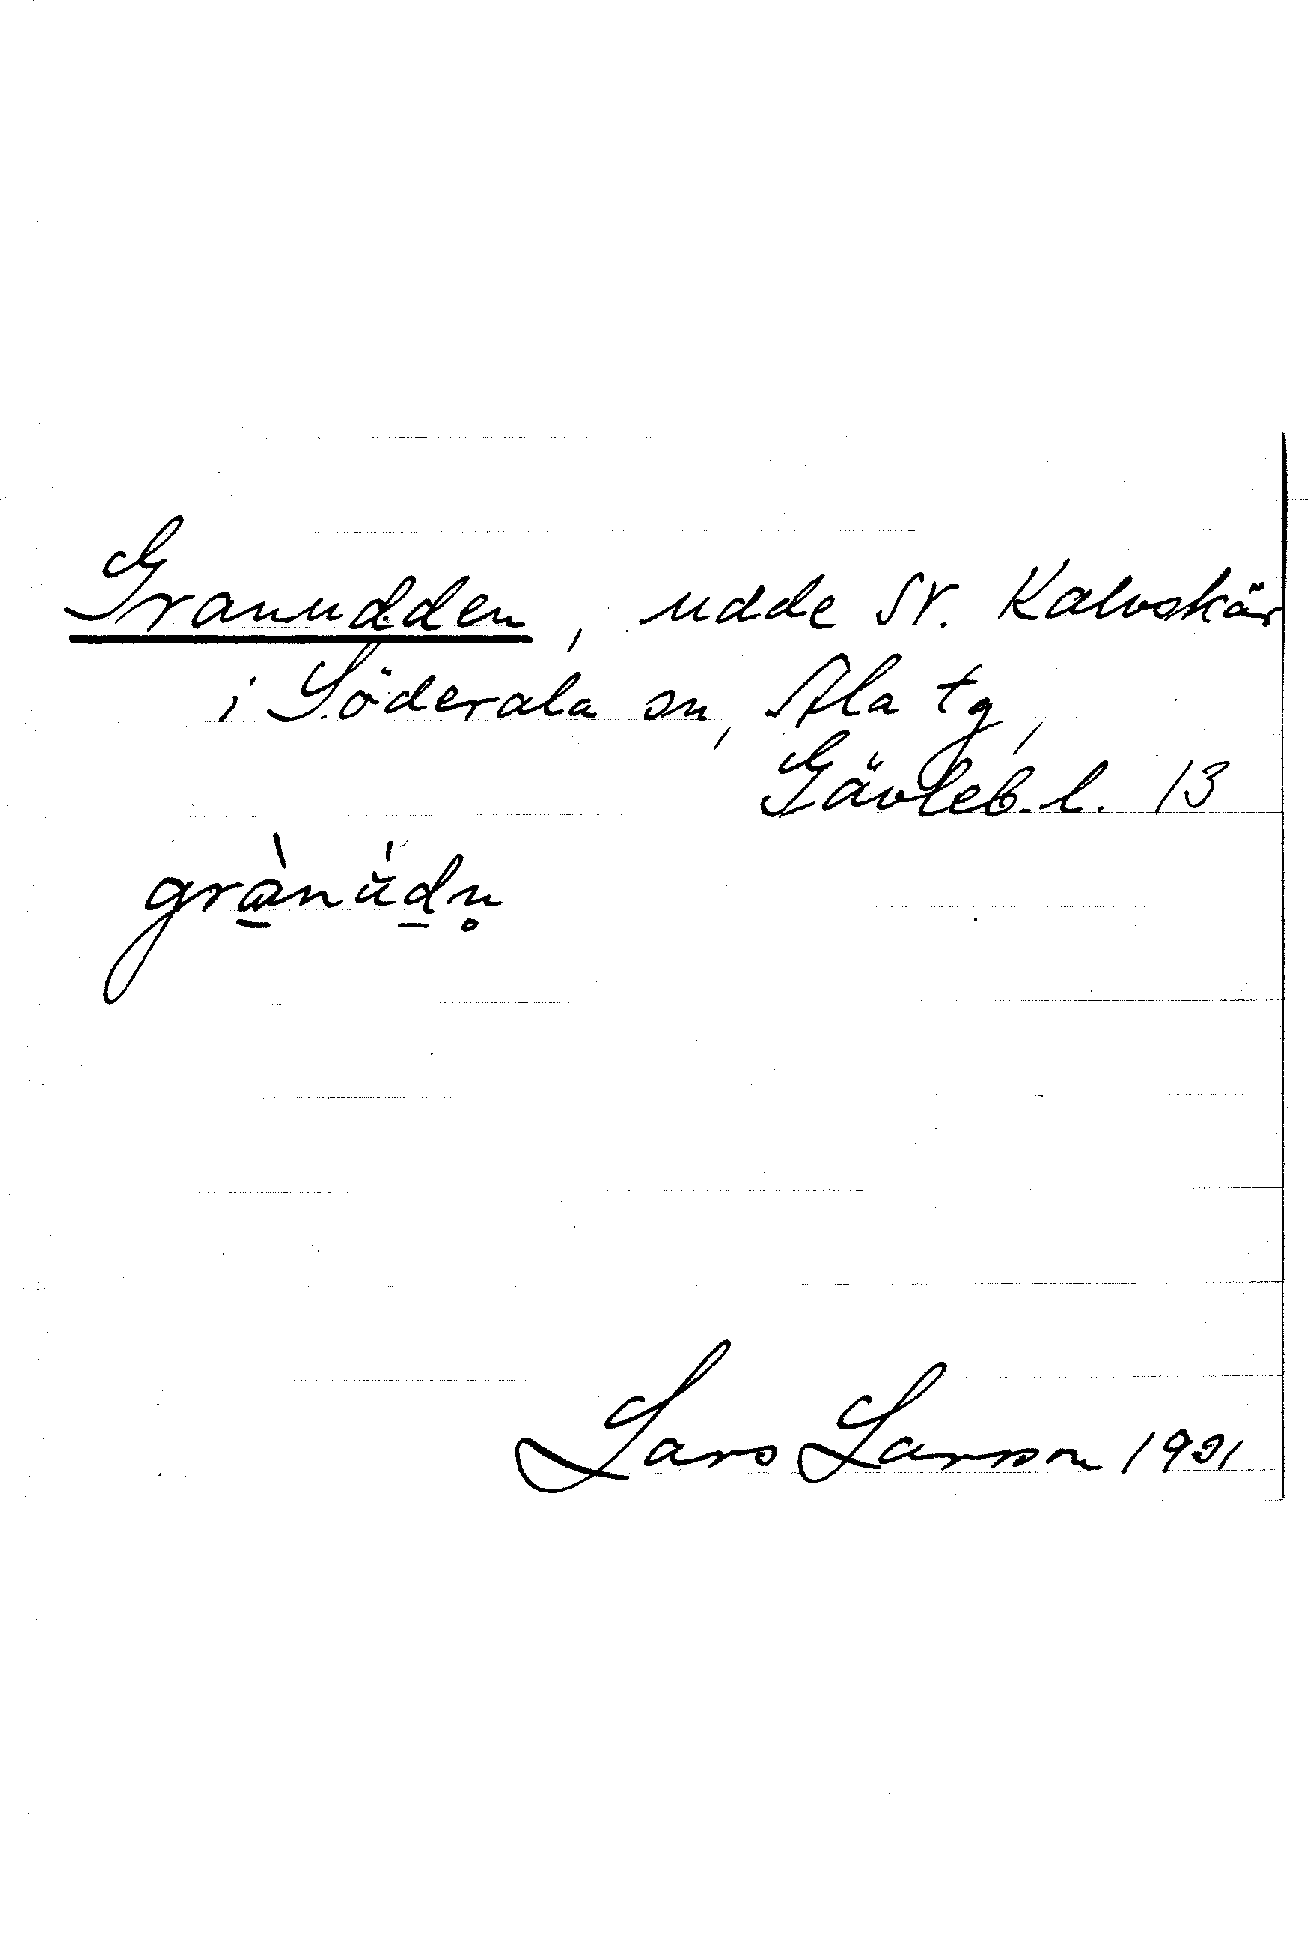 Granudden, udde St. Kalvskär
i Söderala sn, Ala tg,
Gävleb. l. 13
grànúdn̥
Lars Larsson 1931